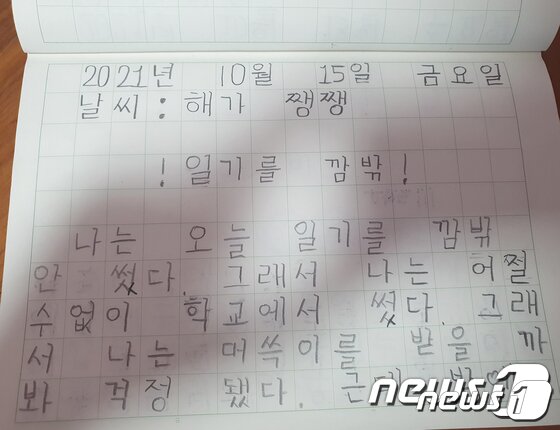 2021년 10월 15일 금요일
날씨: 해가 쨍쨍
! 일기를 깜밖!
나는 오늘 일기를 깜밖
안 썼다. 그래서 나는 어쩔
수없이 학교에서 썼다. 그래
서 나는 대쓱이를 받을 까
봐 걱정 됐다. 근데
news1
news1